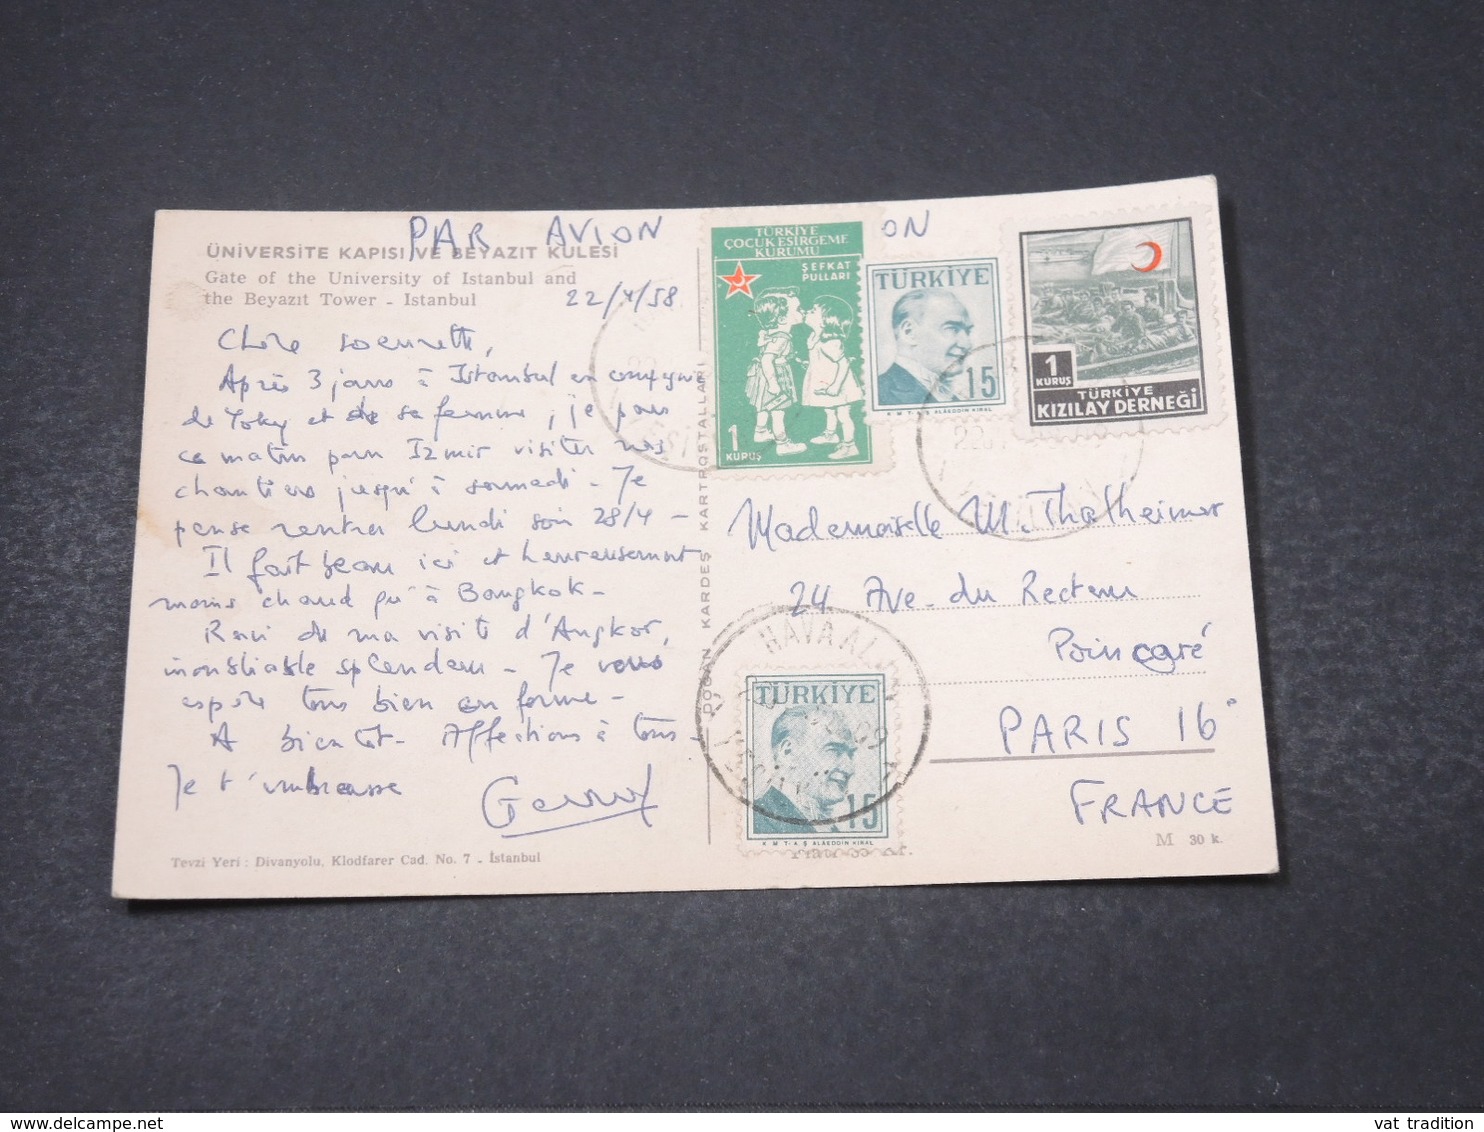 PAR AVION
ON
ÜNİVERSİTE KAPISI VE BEYAZIT KULESİ
Gate of the University of Istanbul and
the Beyazıt Tower - Istanbul
22/4/58
Chère soeurette,
Après 3 jours à Istanbul en compagnie
de Toky et de sa femme, je pars
ce matin pour Izmir visiter nos
chantiers jusqu'à samedi - Je
pense rentrer lundi soir 28/4 -
Il fait beau ici et heureusement
moins chaud qu'à Bangkok -
Ravi de ma visite d'Angkor,
inoubliable splendeur - Je vous
espère tous bien en forme -
A bientôt - Affections à tous -
Je t'embrasse
Tevzi Yeri : Divanyolu, Klodfarer Cad. No. 7 - İstanbul
DOĞAN KARDEŞ KARTPOSTALLARI
TÜRKİYE
ÇOCUK ESİRGEME
KURUMU
ŞEFKAT
PULLARI
1
KURUŞ
TÜRKİYE
15
K M T-A Ş ALÂEDDİN KIRAL
1
KURUŞ
TÜRKİYE
KIZILAY DERNEĞİ
Mademoiselle M. Thalheimer
24 Ave. du Recteur
Poincaré
PARIS 16°
FRANCE
HAVAALANI
TÜRKİYE
15
K M T-A Ş ALÂEDDİN KIRAL
M 30 k.
vat tradition